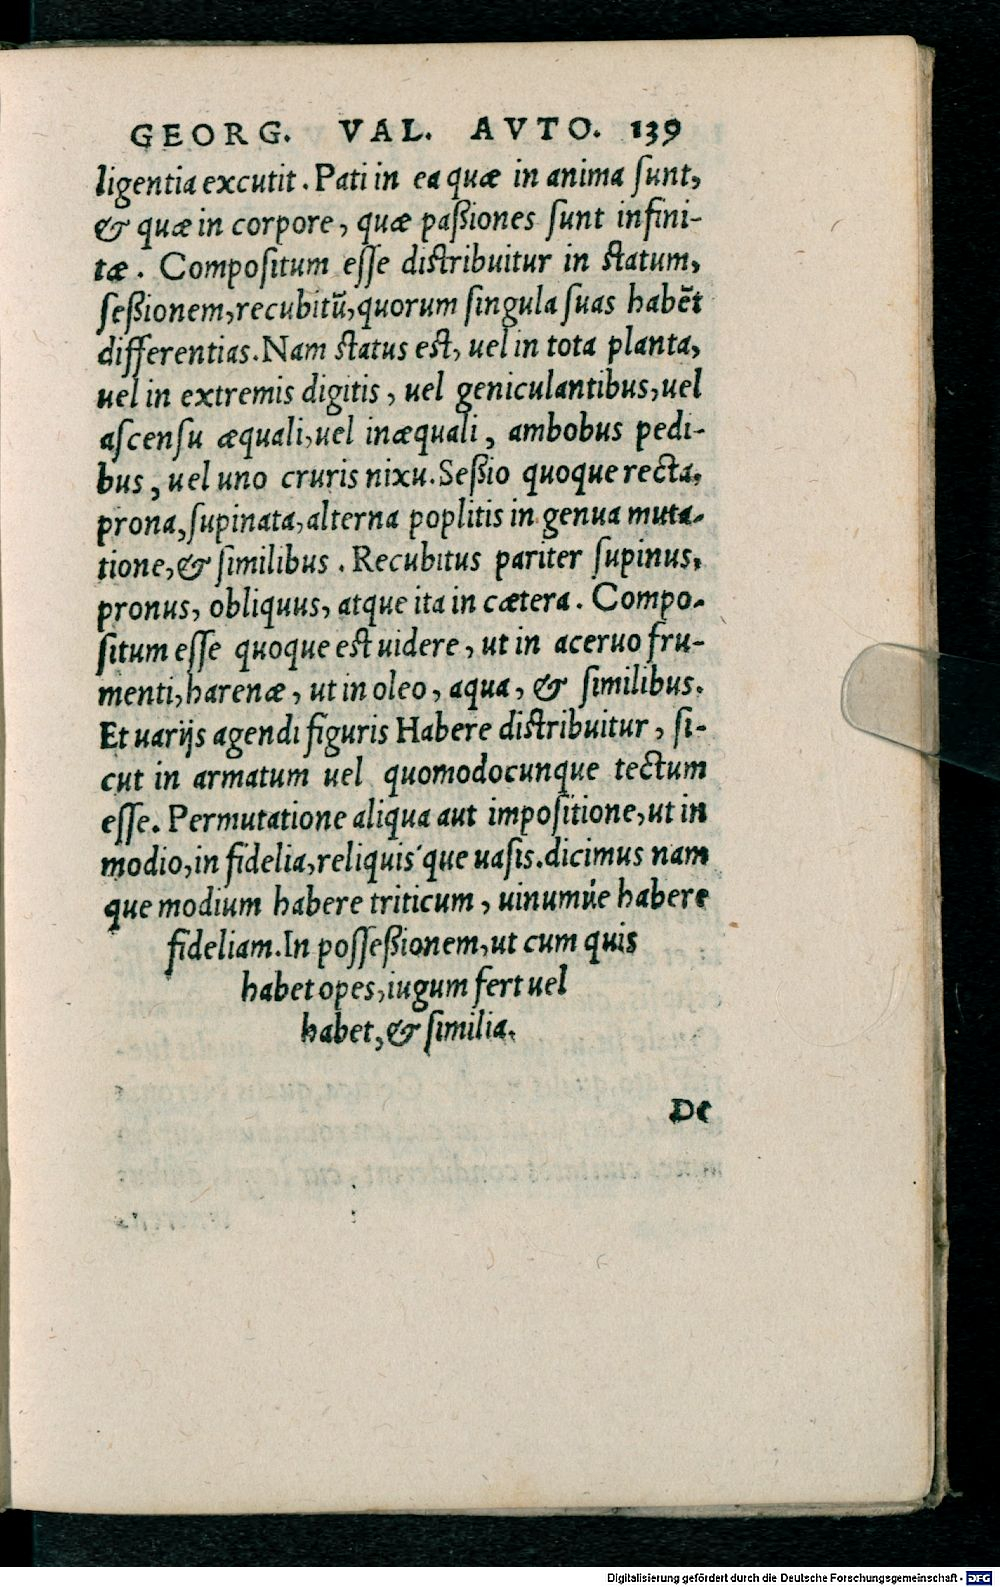 GEORG. VAL. AVTO. 139
ligentia excutit. Pati in ea quæ in anima ſunt,
& quæ in corpore, quæ paßiones ſunt infini-
tæ. Compoſitum eſſe diſtribuitur in ſtatum,
ſeßionem, recubitū, quorum ſingula ſuas habēt
differentias. Nam ſtatus eſt, uel in tota planta,
uel in extremis digitis, uel geniculantibus, uel
aſcenſu æquali, uel inæquali, ambobus pedi-
bus, uel uno cruris nixu. Seßio quoque recta,
prona, ſupinata, alterna poplitis in genua muta-
tione, & ſimilibus. Recubitus pariter ſupinus,
pronus, obliquus, atque ita in cætera. Compo-
ſitum eſſe quoque eſt uidere, ut in aceruo fru-
menti, harenæ, ut in oleo, aqua, & ſimilibus.
Et uarijs agendi figuris Habere diſtribuitur, ſi-
cut in armatum uel quomodocunque tectum
eſſe. Permutatione aliqua aut impoſitione, ut in
modio, in fidelia, reliquis´que uaſis. dicimus nam
que modium habere triticum, uinumúe habere
fideliam. In poſſeßionem, ut cum quis
habet opes, iugum fert uel
habet, & ſimilia.
De
Digitalisierung gefördert durch die Deutsche Forschungsgemeinschaft - DFG